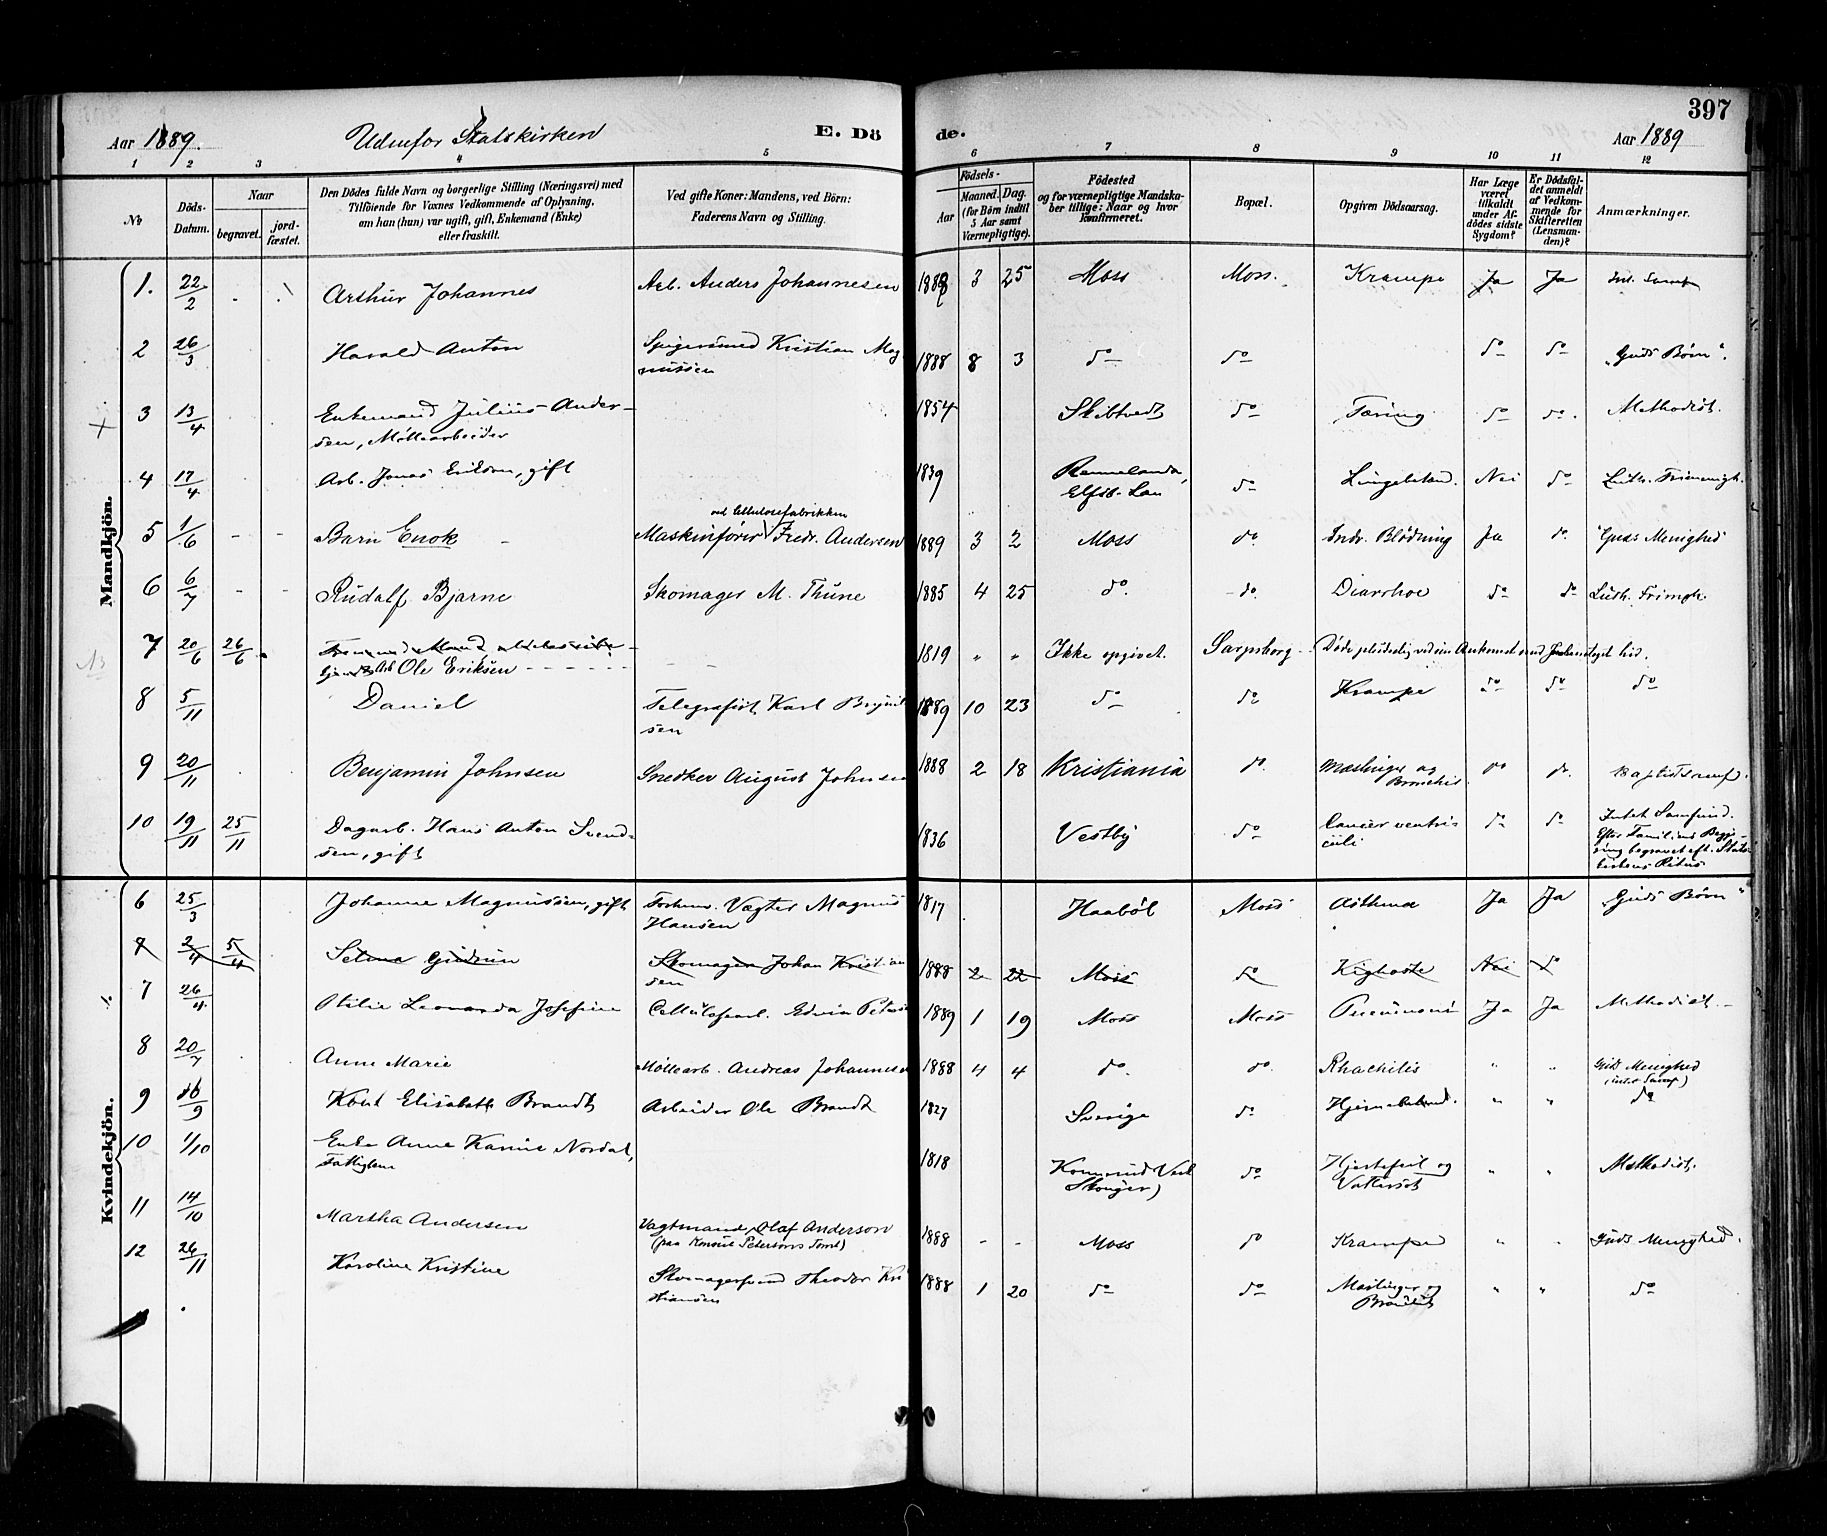 397
Aar 1889. Udenfor Statskirken E. Dö de. Aar 1889
1 2 3 4 5 6 7 8 9 10 11 12
No
Döds-Datum.
Naar
begravet.
jordfæstet.
Den Dödes fulde Navn og borgerlige Stilling (Næringsvei) med
Tilföiende for Voxnes Vedkommende af Oplysning,
om han (hun) var ugift, gift, Enkemand (Enke)
eller fraskilt.
Ved gifte Koner: Mandens, ved Börn:
Faderens Navn og Stilling.
Födsels-
Aar
Maaned. Dag.
(for Börn indtil
5 Aar samt
Værnepligtige).
Födested
og for værnepligtige Mandska-
ber tillige: Naar og hvor
konfirmeret.
Bopæl.
Opgiven Dödsaarsag.
Har Læge
været
tilkaldt
under Af-
dödes sidste
Sygdom?
Er Dödsfal-
det anmeldt
af Vedkom-
mende for
Skifteretten
(Lensman-
den)?
Anmærkninger.
Mandkjön.
1. 22/2 Arthur Johannes Arb. Anders Johannesen 1889 3 25 Moss Moss. Krampe Ja Ja
2 26/3 Harald Anton Spigersmed Kristian Mag-
nussen 1888 8 3 do do do do "Guds Börn".
3 13/4 Enkemand Julius Ander-
sen, Møllearbeider 1854 Skibtvedt do Tæring do do. Methodist.
4 17/4 Arb. Jonas Erikson, gift 1839
Elfsb. Lan do Nei do Luth. Frimenigh.
5 1/6 Barn Enok Maskinfører ved Cellulosefabrikken Fredr. Andersen 1889 3 2 Moss do. Indr. Blödning Ja do. Guds Menighed
6 6/7 Rudolf Bjarne Skomager M. Thune 1885 4 25 do. do. Diarrhoe do do Luth. Frimgh.
7 20/6 26/6
Ole Eriksen 1819 " " Ikke opgivet. Sarpsborg
8 5/11 Daniel Telegrafist Karl
sen 1889 10 23 do do Krampe do do do
9 20/11 Benjamin Johnsen Snedker August Johnsen 1888 2 18 Kristiania do. Mæslinger og
Bronchit. do do. Baptistsamf.
10 19/11 25/11 Dagarb. Hans Anton Svend-
sen, gift 1836 Vestby do Cancer ventri-
culi do do Intet Samfund.
Efter Familiens Begjæ-
ring begravet eft. Stats-
kirkens Ritus
Kvindekjön.
6 25/3 Johanne Magnussen, gift Forhenv. Vægter Magnus
Hansen 1817 Haaböl Moss Asthma Ja Ja "Guds Børn"
7 2/4 5/4 Selma Gudrun Skomager Johan Kristian
sen 1888 2 22 Moss do Kighoste Nei do
7 26/4 Otilie Leonarda Josefine Cellulosearb. Edvin 1889 1 19 Moss Moss Ja Ja Methodist.
8 20/7 Anne Marie Møllearb. Andreas Johannesen 1888 4 4 do. do. Rhachitis " " Guds Menighed
9 16/9 Elisabeth Brandt Arbeider Ole Brandt 1827 Sverige do " " do
10 1/10 Enke Anne Karine Nordal, 1818 do Hjertefeil og
Vattersot " " Methodist.
11 14/10 Martha Andersen Vagtmand, Olaf Anderson
(paa Konsul Petersons Tomt) 1888 - - Moss do Krampe " " Guds Menighed.
12 26/11 Karoline Kristine Skomagersvend Theodor Kri
stiansen 1888 1 20 do do Mæslinger og
Bronchit " " do